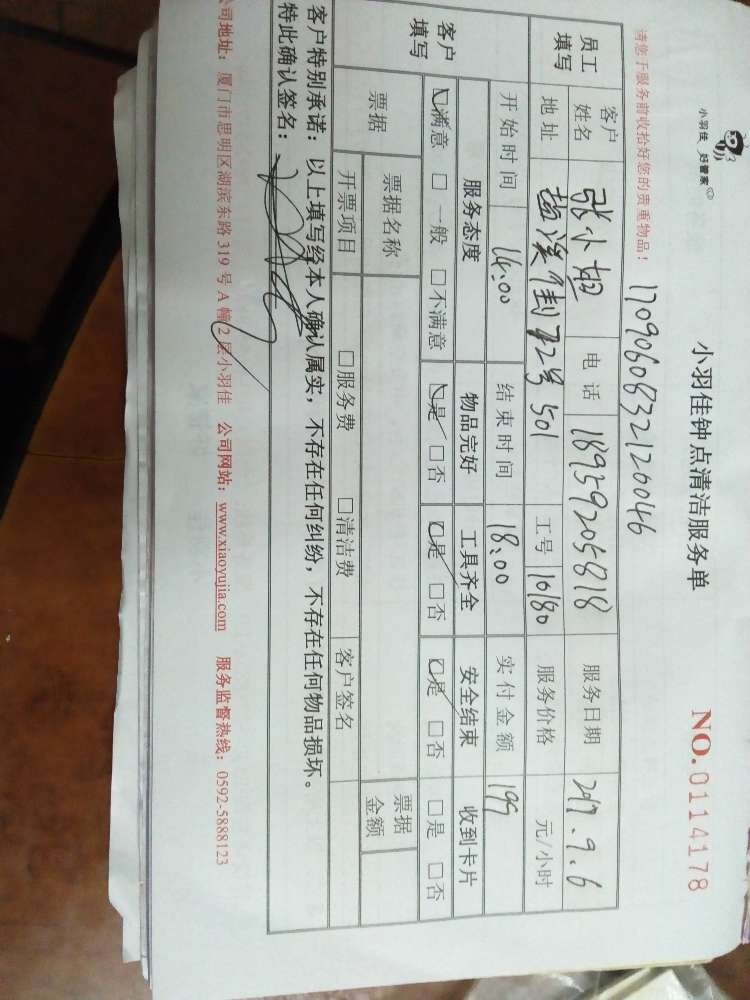 小羽佳 好管家
小羽佳钟点清洁服务单
NO. 0114178
请您于服务前收拾好您的贵重物品！
17090608321120046
员工填写 客户姓名 张小姐 电话 18959205818 服务日期 2017.9.6
地址 2号501 工号 10180 服务价格 元/小时
客户填写 开始时间 14:00 结束时间 18:00 实付金额 199
服务态度 物品完好 工具齐全 安全结束 收到卡片
☑满意 □一般 □不满意 ☑是 □否 ☑是 □否 ☑是 □否 □是 □否
票据 票据名称 票据金额
开票项目 □服务费 □清洁费 客户签名
客户特别承诺：以上填写经本人确认属实，不存在任何纠纷，不存在任何物品损坏。
特此确认签名：
公司地址：厦门市思明区湖滨东路319号A幢2层小羽佳 公司网站：www.xiaoyujia.com 服务监督热线：0592-5888123